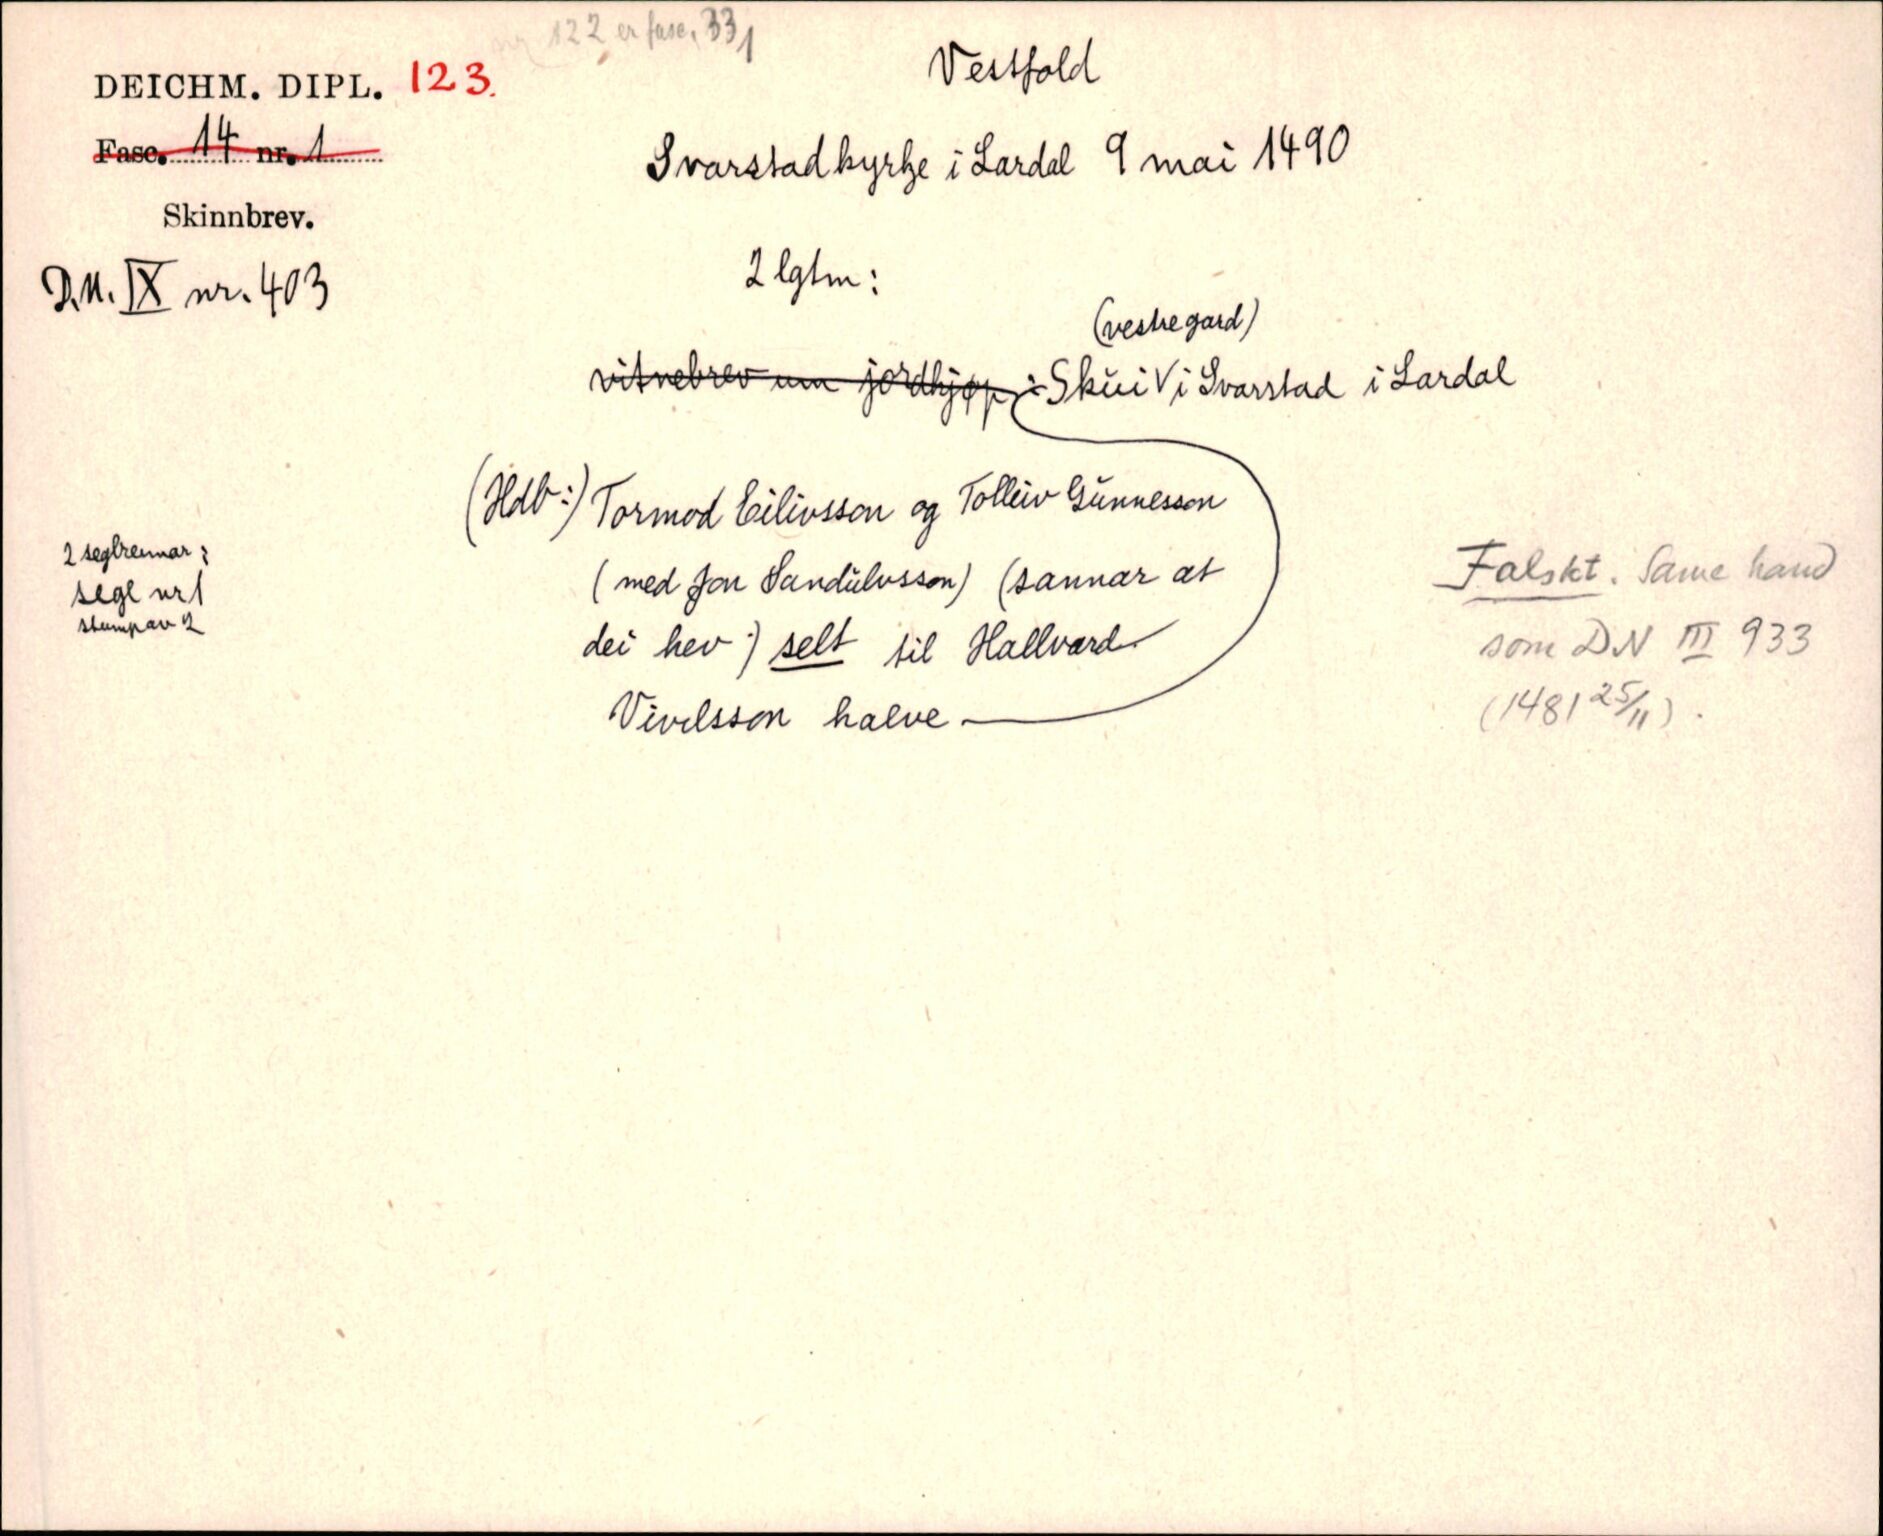 nr 122 er fasc. 33,1
DEICHM. DIPL. 123.
Fasc. 14 nr. 1
Skinnbrev.
D.N. IX nr. 403
Vestfold
Svarstad kyrkje i Lardal 9 mai 1490
2 lgtm:
(vestre gard)
vitnebrev um jordkjøp i Skŭi V i Svarstad i Lardal
(Hdb:) Tormod Eilivsson og Tolleiv Gŭnnesson
(med Jon Sandŭlvsson) (sannar at
dei hev:) selt til Hallvard
Vivilsson halve
2 seglreimar:
segl nr 1
stump av 2
Falskt. Same hand
som DN III 933
(1481 25/11).